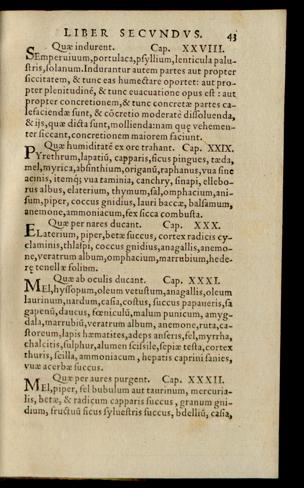 LIBER SECVNDVS. 43
Quæ indurent. Cap. XXVIII.
SEmperuiuum, portulaca, psyllium, lenticula palu-
stris, solanum. Indurantur autem partes aut propter
siccitatem, & tunc eas humectare oportet: aut pro-
pter plenitudinē, & tunc euacuatione opus est: aut
propter concretionem, & tunc concretæ partes ca-
lefaciendæ sunt, & cōcretio moderatè dissoluenda,
& ijs, quæ dicta sunt, molliendum quę vehemen-
ter siccant, concretionem maiorem faciunt.
Quæ humiditatē ex ore trahant. Cap. XXIX.
PYrethrum, lapatiū, capparis, ficus pingues, tæda,
mel, myrica, absinthium, origanū, raphanus, vua sine
acinis, itemq; vua taminia, canchry, sinapi, ellebo-
rus albus, elaterium, thymum, sal, omphacium, ani-
sum, piper, coccus gnidius, lauri baccæ, balsamum,
anemone, ammoniacum, fex sicca combusta.
Quæ per nares ducant. Cap. XXX.
ELaterium, piper, betæ succus, cortex radicis cy-
claminis, thlaspi, coccus gnidius, anagallis, anemo-
ne, veratrum album, omphacium, marrubium, hede-
rę tenellæ folium.
Quæ ab oculis ducant. Cap. XXXI.
MEl, hyssopum, oleum vetustum, anagallis, oleum
laurinum, nardum, casia, costus, succus papaueris, sa
gapenū, daucus, fœniculū, malum punicum, amyg-
dala, marrubiū, veratrum album, anemone, ruta, ca-
storeum, lapis hæmatites, adeps anseris, fel, myrrha,
chalcitis, sulphur, alumen scissile, sepiæ testa, cortex
thuris, scilla, ammoniacum, hepatis caprini sanies,
vuæ acerbæ succus.
Quæ per aures purgent. Cap. XXXII.
MEl, piper, fel bubulum aut taurinum, mercuria-
lis, betæ, & radicum capparis succus, granum gni-
dium, fructuū ficus syluestris succus, bdelliū, casia,